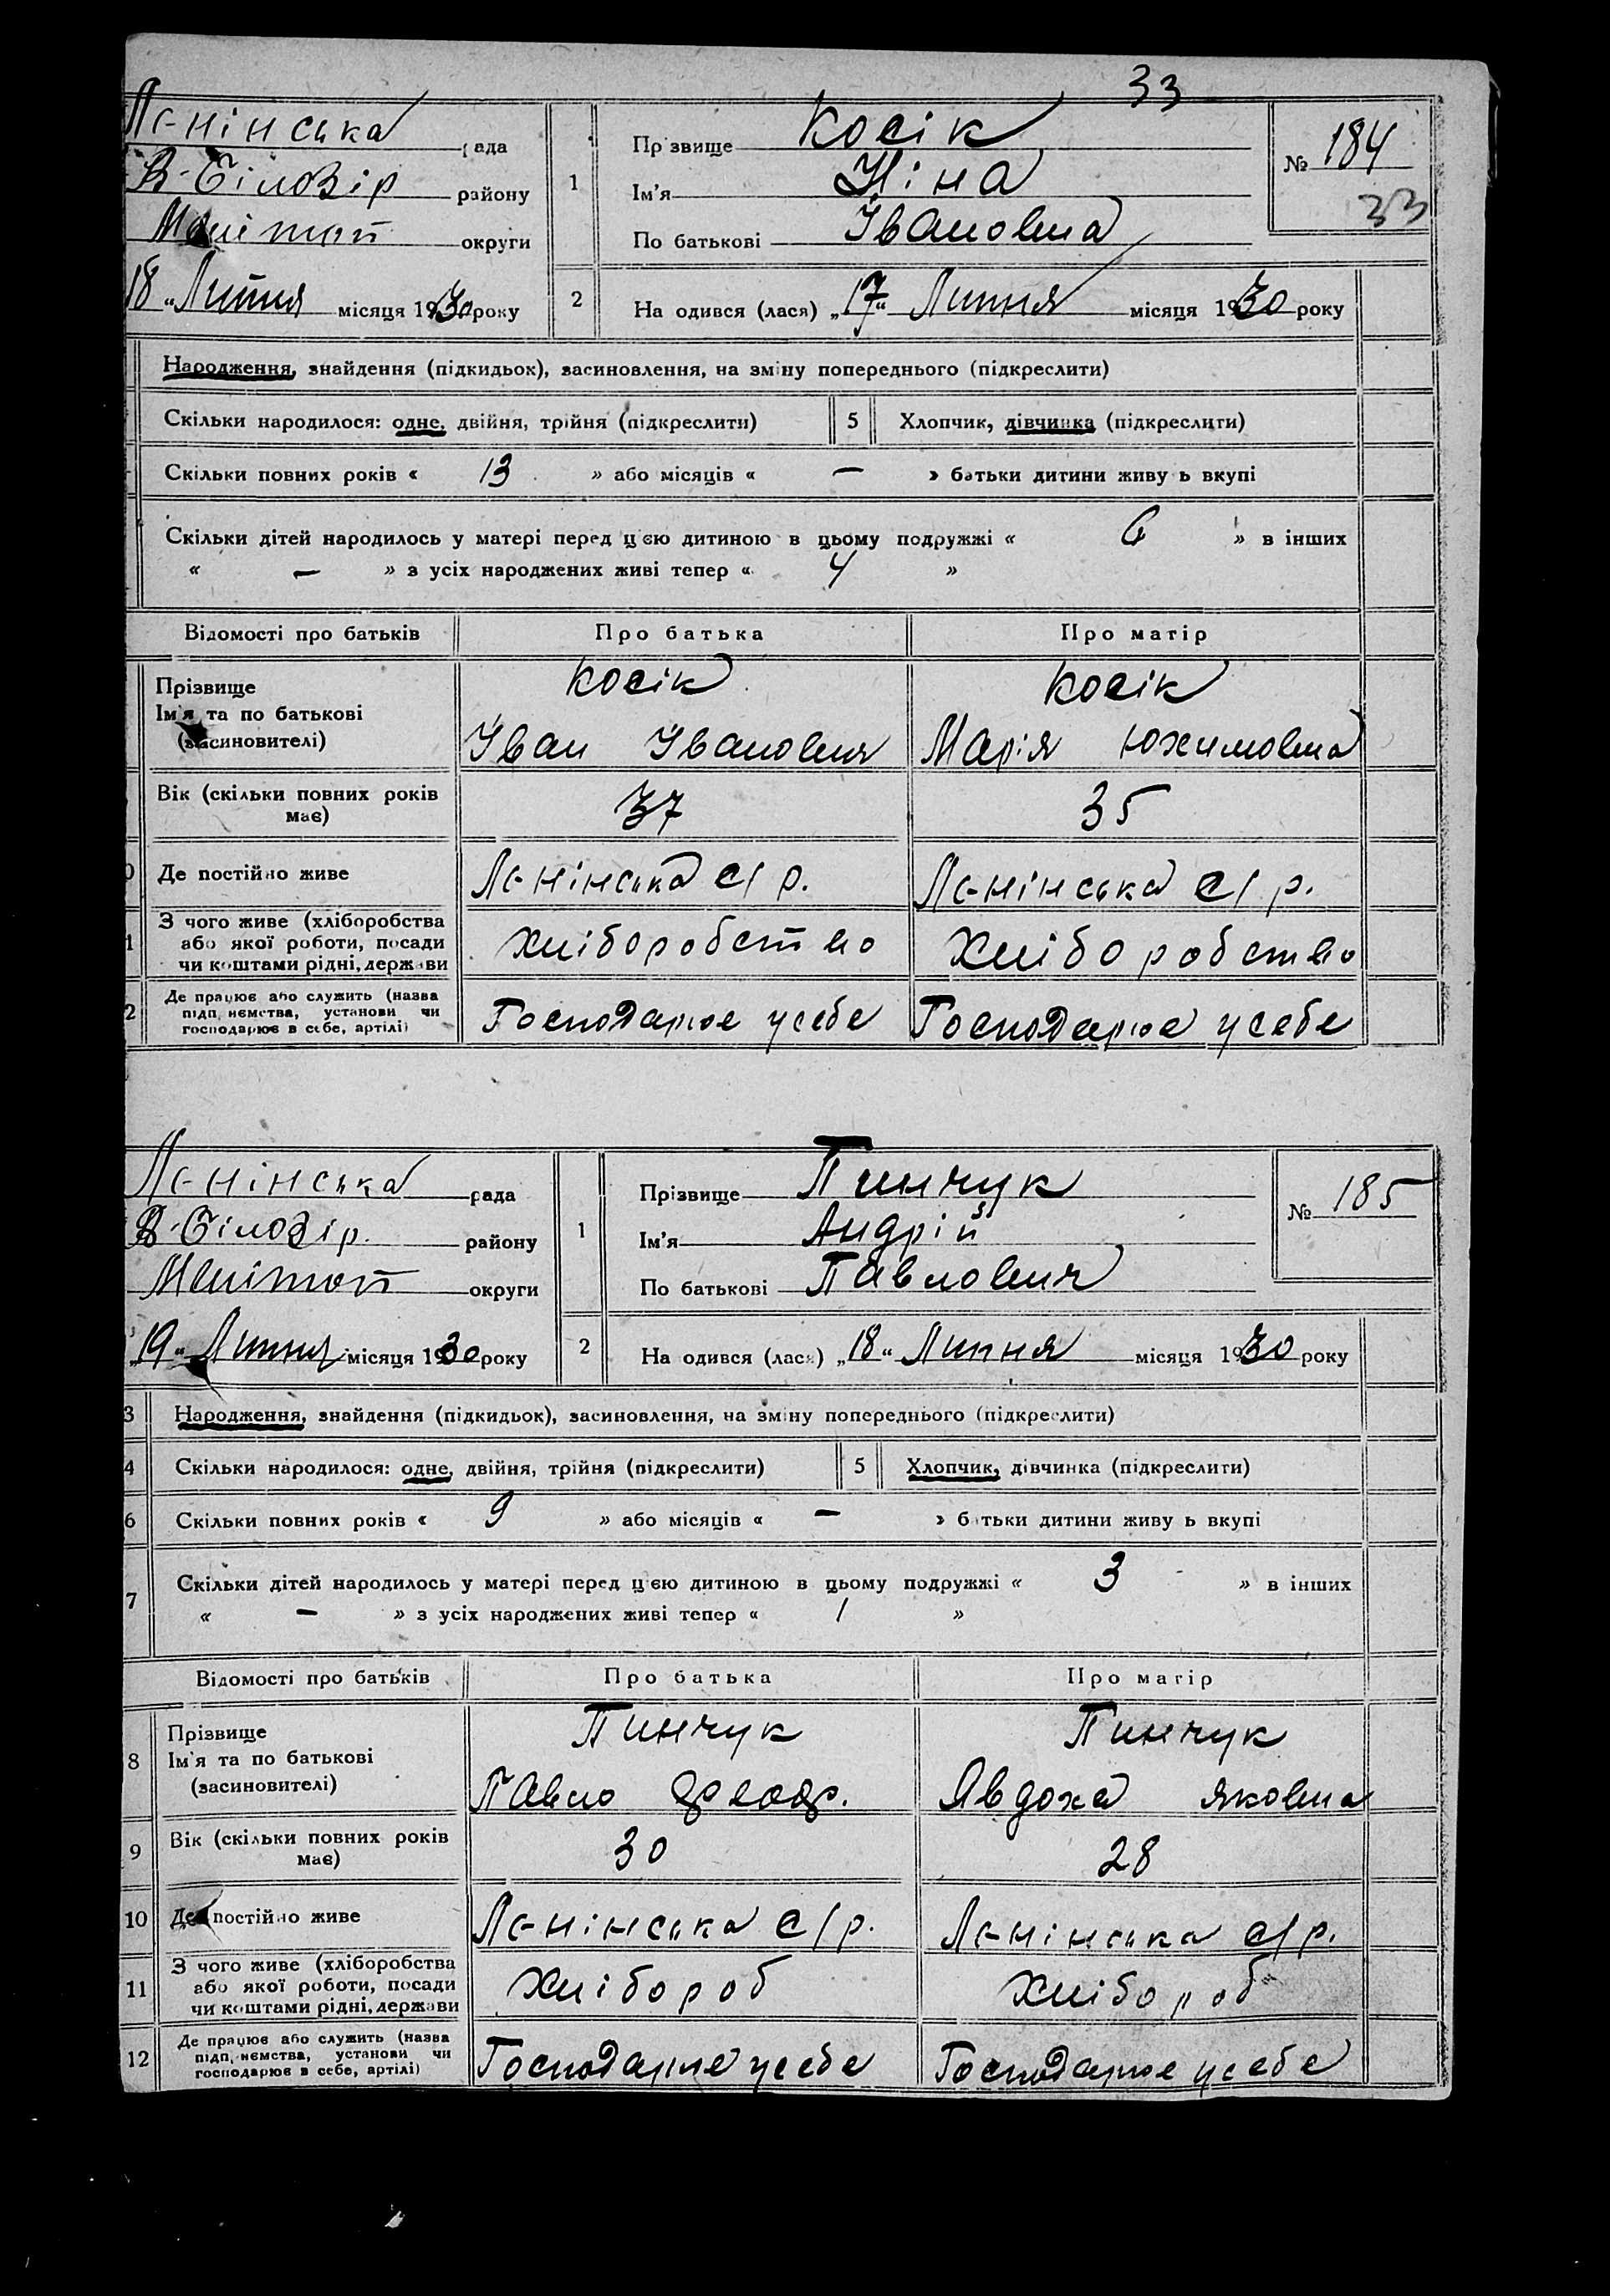 33
Ленінська рада
В-Білозір району
Мелітоп округи
18 „ Липня місяця 1930 року
1
Прізвище Косік
Ім'я Ніна
По батькові Івановна
№ 184
33
2
На одився (лася) „17“ Липня місяця 1930 року
Народження, знайдення (підкидьок), засиновлення, на зміну попереднього (підкреслити)
Скільки народилося: одне, двійня, трійня (підкреслити) 5 Хлопчик, дівчинка (підкреслити)
Скільки повних років « 13 » або місяців « — » батьки дитини живу ь вкупі
Скільки дітей народилось у матері перед цією дитиною в цьому подружжі « 6 » в інших
« — » з усіх народжених живі тепер « 4 »
Відомості про батьків Про батька Про матір
Прізвище
Ім'я та по батькові
(засиновителі)
Косік
Іван Іванович
Косік
Марія Юхимовна
Вік (скільки повних років
має)
37
35
0 Де постійно живе Ленінська с/р. Ленінська с/р.
1
З чого живе (хліборобства
або якої роботи, посади
чи коштами рідні, держави
хліборобство
Хліборобство
2
Де працює або служить (назва
підп.иємства, установи чи
господарює в себе, артілі)
Господарює у себе
Господарює у себе
Ленінська рада
В-Білозір. району
Мелітоп округи
„19“ Липня місяця 1930 року
1
Прізвище Пинчук
Ім'я Андрій
По батькові Павлович
№ 185
2
На одився (лася) „18“ Липня місяця 1930 року
3 Народження, знайдення (підкидьок), засиновлення, на зміну попереднього (підкреслити)
4 Скільки народилося: одне, двійня, трійня (підкреслити) 5 Хлопчик, дівчинка (підкреслити)
6 Скільки повних років « 9 » або місяців « — » батьки дитини живу ь вкупі
7
Скільки дітей народилось у матері перед цією дитиною в цьому подружжі « 3 » в інших
« — » з усіх народжених живі тепер « 1 »
Відомості про батьків Про батька Про матір
8
Прізвище
Ім'я та по батькові
(засиновителі)
Пинчук
Павло Феодф.
Пинчук
Явдоха Яковна
9
Вік (скільки повних років
має)
30
28
10 Де постійно живе Ленінська с/р. Ленінська с/р.
11
З чого живе (хліборобства
або якої роботи, посади
чи коштами рідні, держави
Хлібороб
Хлібороб
12
Де працює або служить (назва
підп.иємства, установи чи
господарює в себе, артілі)
Господарює у себе
Господарює у себе